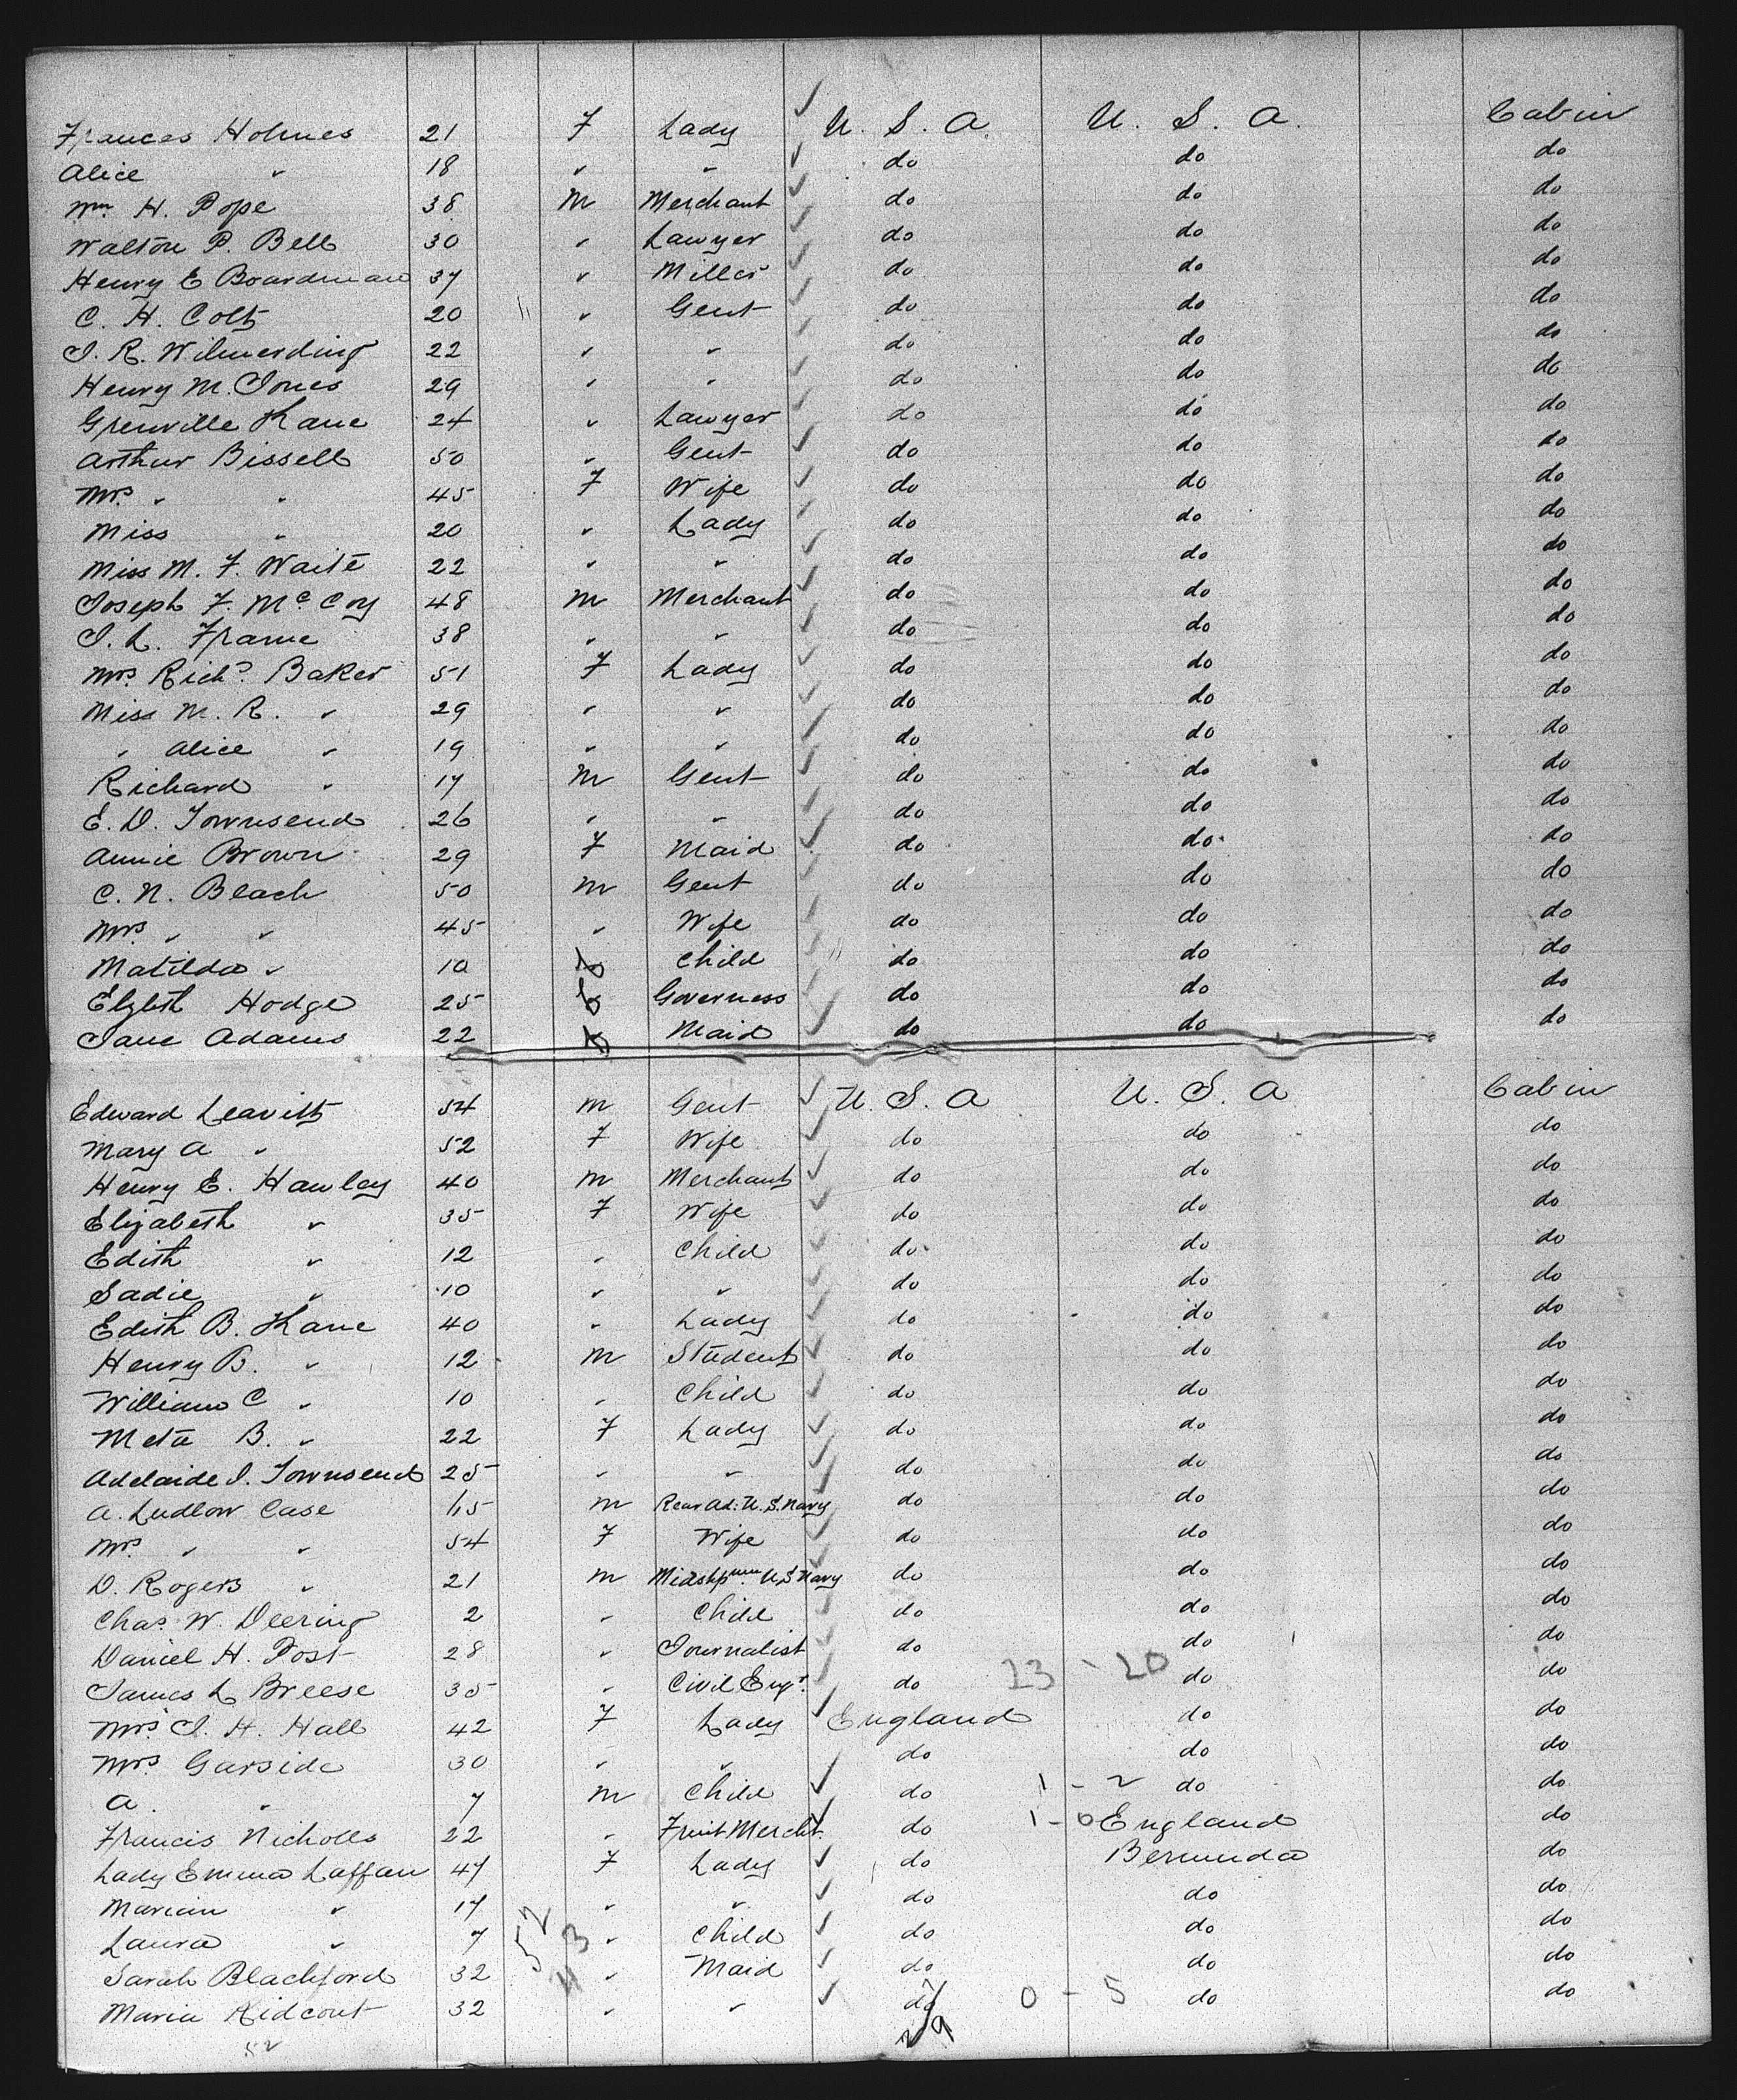 Frances Holmes 21 F Lady ✓ U. S. A. U. S. A. Cabin
Alice " 18 " " ✓ do do do
Wm. H. Pope 38 M Merchant ✓ do do do
Walton P. Bell 30 " Lawyer ✓ do do do
Henry E Boardman 37 " Miller ✓ do do do
C. H. Colt 20 " Gent ✓ do do do
J. R. Wilmerding 22 " " ✓ do do do
Henry M. Jones 29 " " ✓ do do do
Grenville Kane 24 " Lawyer ✓ do do do
Arthur Bissell 50 " Gent ✓ do do do
Mrs. " " 45 F Wife ✓ do do do
Miss " 20 " Lady ✓ do do do
Miss M. F. Waite 22 " " ✓ do do do
Joseph F. McCoy 48 M Merchant ✓ do do do
J. L. Frame 38 " " ✓ do do do
Mrs. Richd. Baker 51 F Lady ✓ do do do
Miss M. R. " 29 " " ✓ do do do
" Alice " 19 " " ✓ do do do
Richard " 17 M Gent ✓ do do do
E. D. Townsend 26 " " ✓ do do do
Annie Brown 29 F Maid ✓ do do do
C. N. Beach 50 M Gent ✓ do do do
Mrs " " 45 " Wife ✓ do do do
Matilda " 10 Child ✓ do do do
Elzbth Hodge 25 Governess ✓ do do do
Jane Adams 22 Maid ✓ do do do
Edward Leavitt 54 M Gent ✓ U. S. A U. S. A Cabin
Mary A " 52 F Wife ✓ do do do
Henry E. Hawley 40 M Merchant ✓ do do do
Elizabeth " 35 F Wife ✓ do do do
Edith " 12 " Child ✓ do do do
Sadie " 10 " " ✓ do do do
Edith B. Kane 40 " Lady ✓ do do do
Henry B. " 12 M Student ✓ do do do
William C " 10 " Child ✓ do do do
Meta B. " 22 F Lady ✓ do do do
Adelaide J. Townsend 25 " " ✓ do do do
A. Ludlow Case 65 M Rear Ad: U.S. Navy ✓ do do do
Mrs. " " 54 F Wife ✓ do do do
D. Rogers " 21 M Midshpmn. U S Navy ✓ do do do
Chas. W. Deering 2 " Child ✓ do do do
Daniel H. Post 28 " Journalist ✓ do do do
James L Breese 35 " Civil Engr. ✓ do 23 - 20 do do
Mrs J. H. Hall 42 F Lady ✓ England do do
Mrs. Garside 30 " " do do do
A. " 7 M Child ✓ do 1 - 2 do do
Francis Nicholls 22 " Fruit Mercht. ✓ do 1 - 0 England do
Lady Emma Laffan 47 F Lady ✓ do Bermuda do
Marian " 17 " " ✓ do do do
Laura " 7 52 " Child ✓ do do do
Sarah Blachford 32 43 " Maid ✓ do do do
Maria Rideout 32 " " ✓ do 0 - 5 do do
52